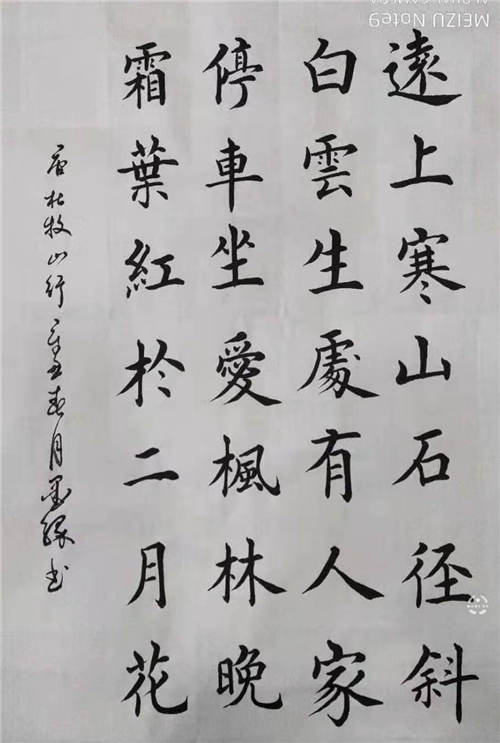 遠上寒山石徑斜
白雲生處有人家
停車坐愛楓林晚
霜葉紅於二月花
唐杜牧山行 春月墨緣书
MEIZU Note9